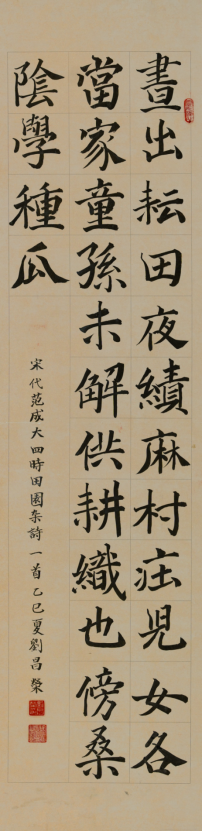 晝出耘田夜績麻村庄兒女各
當家童孫未解供耕織也傍桑
陰學種瓜
宋代范成大四時田園杂詩一首乙巳夏劉昌榮